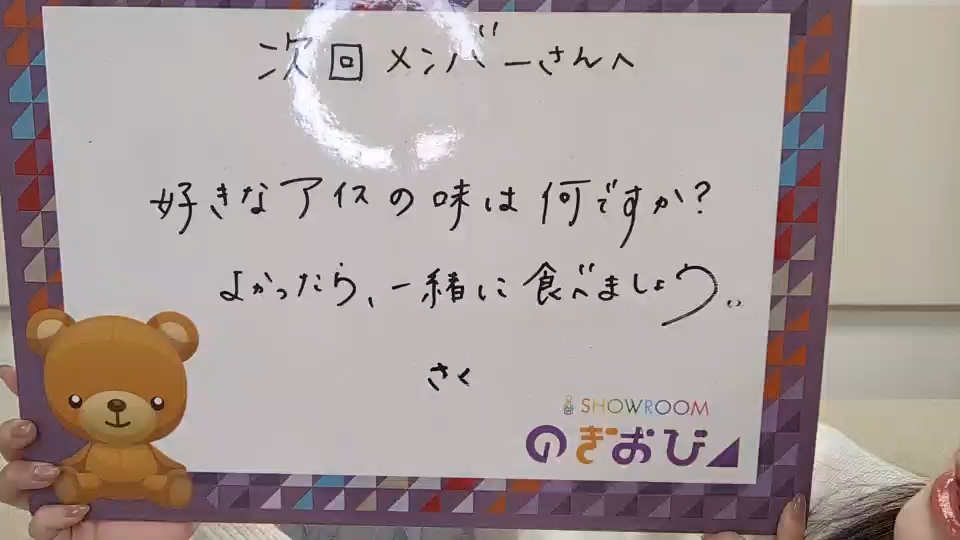 次回メンバーさんへ
好きなアイスの味は何ですか?
よかったら、一緒に食べましょう。
さく
SHOWROOM
のぎおび